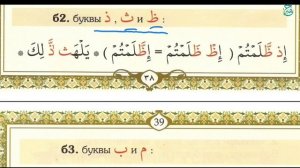 б2. буквы ظ и ث , ذ :
إِذ ظَّلَمْتُمْ ( إِظْ ظَلَمْتُمْ = إِظَّلَمْتُمْ ) * يَلْهَث ذَّلِكَ *
٣٨
39
б3. буквы ب и م :